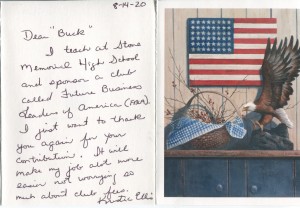 8-14-20
Dear "Buck"
I teach at Stone
Memorial High School
and sponsor a club
called Future Business
Leaders of America (FBLA).
I just want to thank
you again for your
contributions. It will
make my job alot more
easier not worrying so
much about club fees.
Ellis